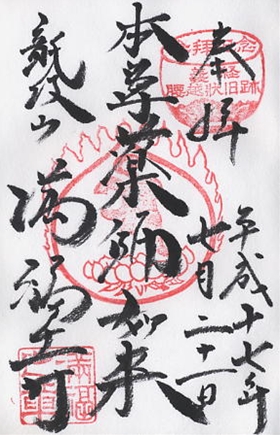 奉拝
平成十七年
七月二十一日
本尊薬師如来
龍護山
満福寺